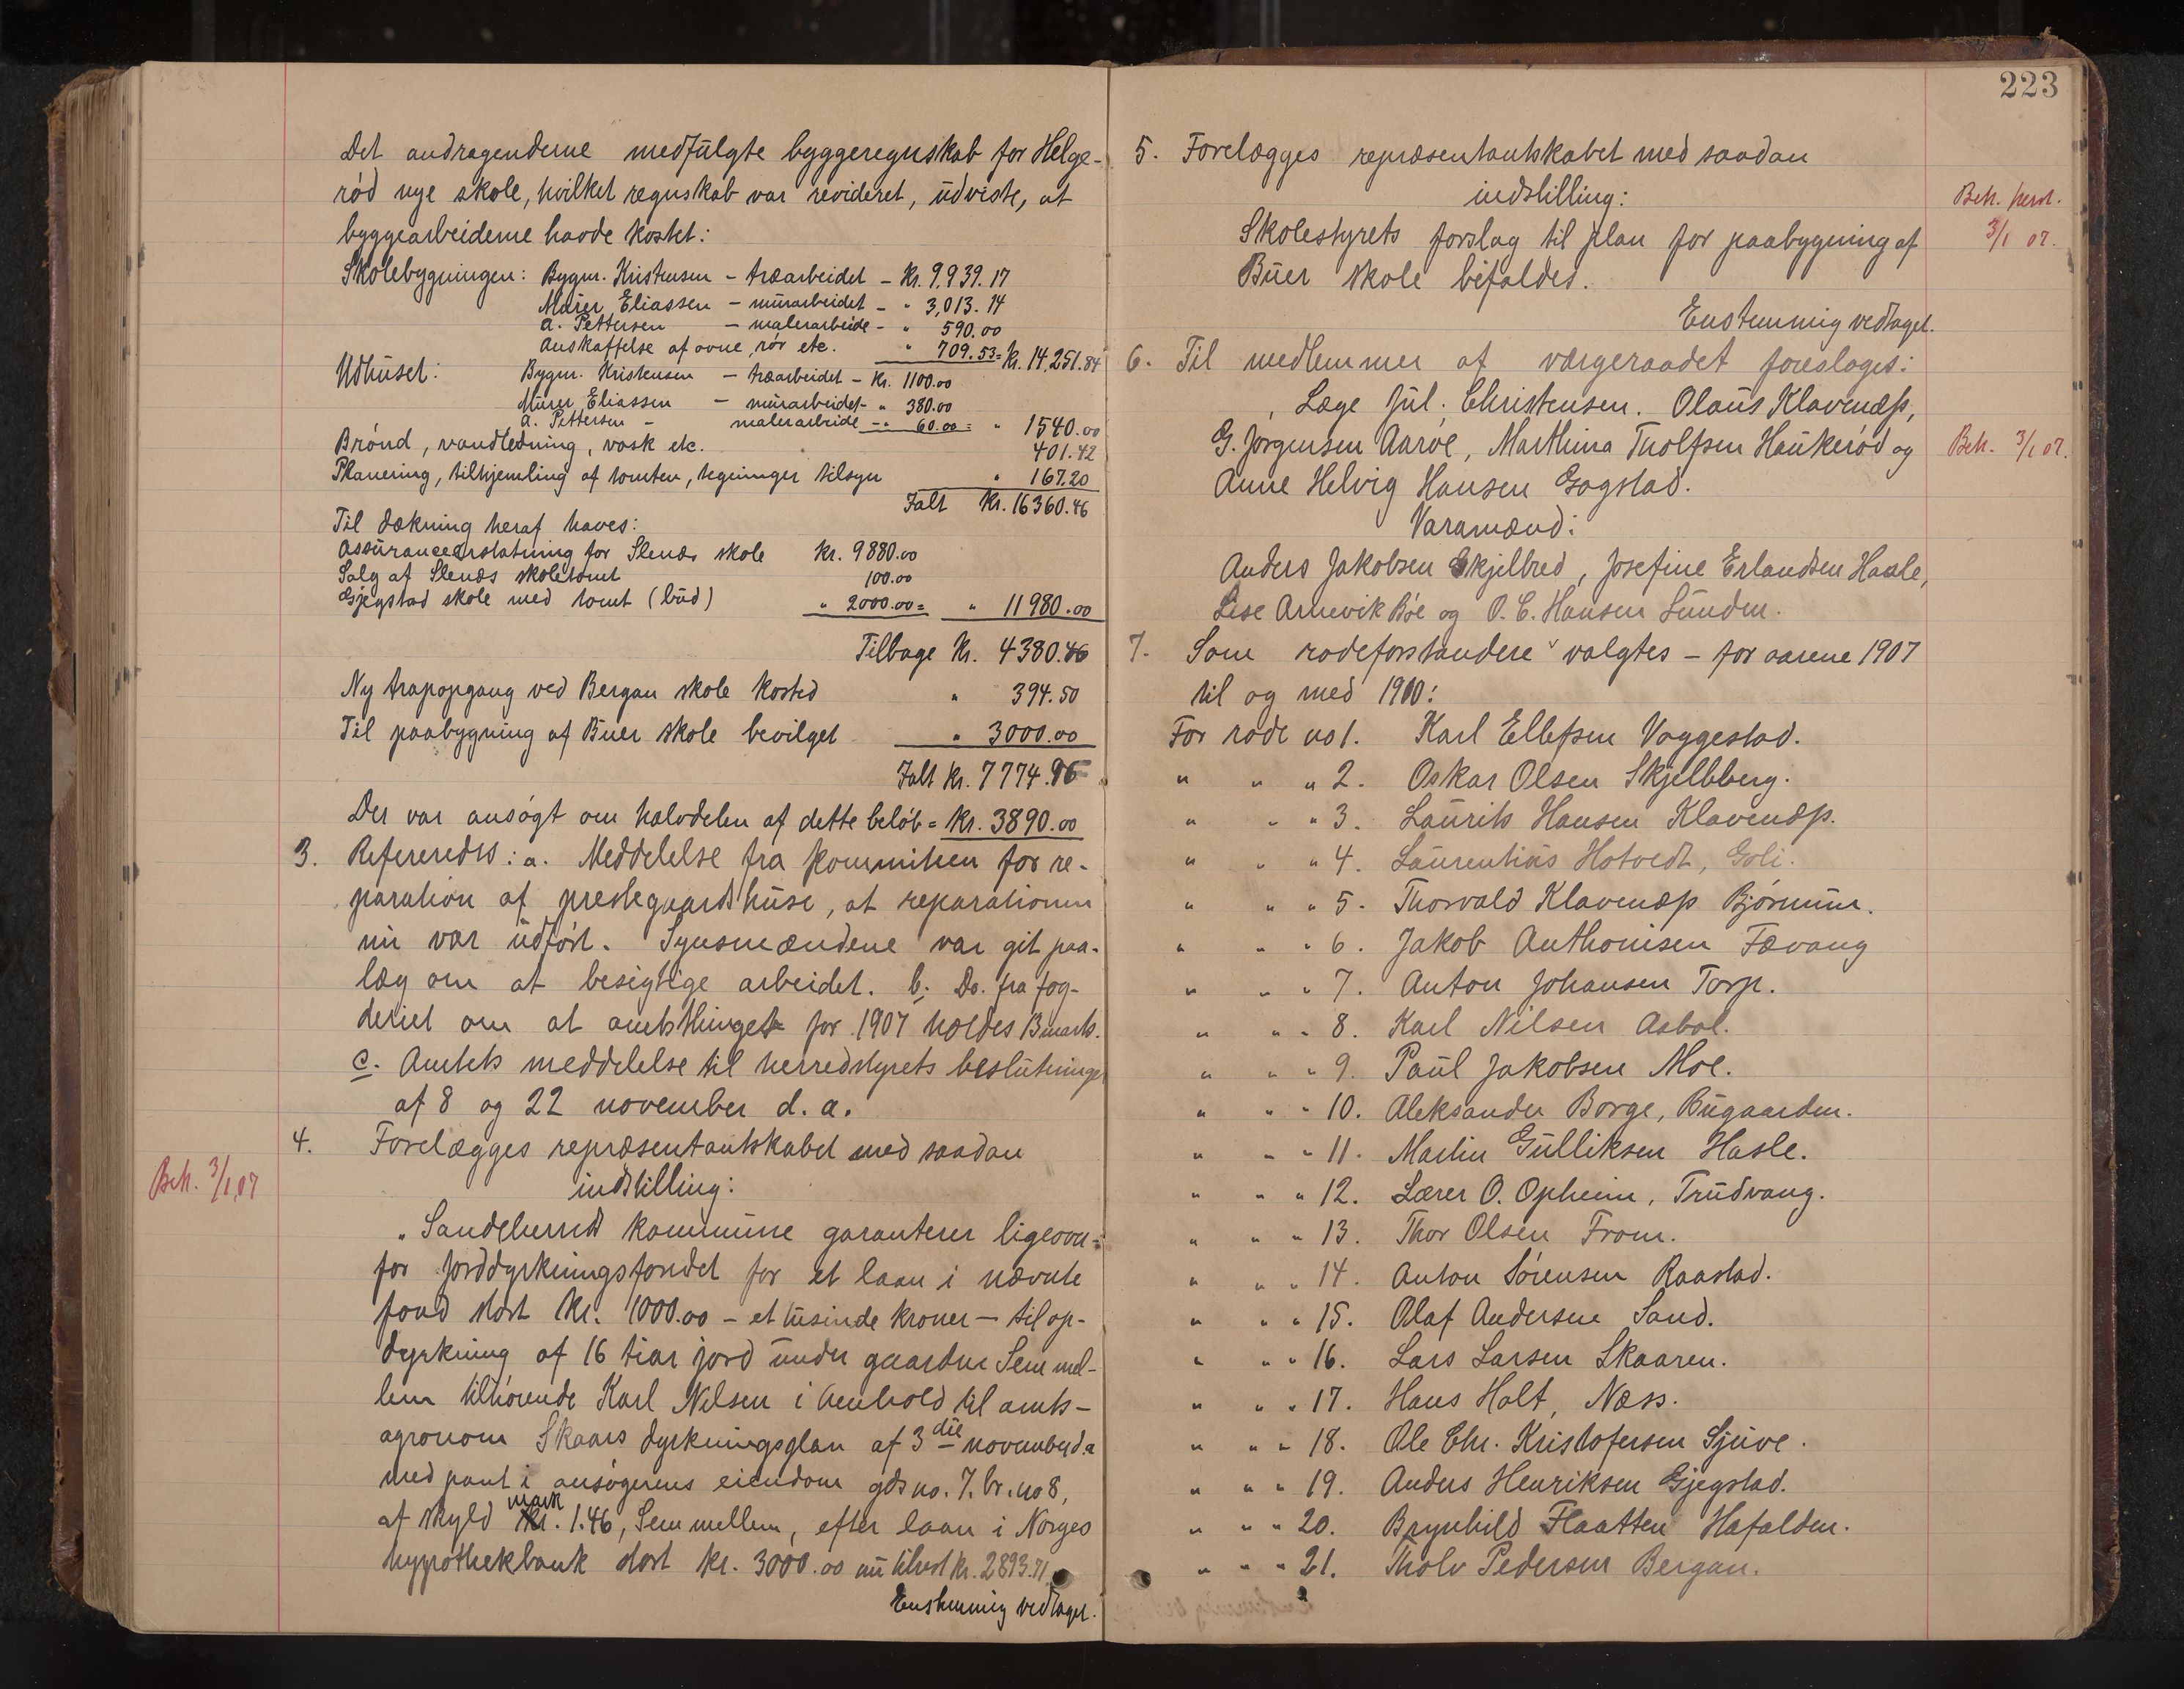 Det andragenderne medfulgte byggeregnskab for Helge-
rød nye skole, hvilket regnskab var revideret, udviste, at
byggearbeiderne havde kostet:
Skolebygningen: Bygm. Kristensen – træarbeidet – Kr. 9,939.17
Murer Eliassen – murarbeidet – " 3,013.14
A. Pettersen – malerarbeide – " 590.00
Anskaffelse af ovne, rør etc. " 709.53 = Kr. 14251.84
Udhuset: Bygm. Kristensen – træarbeidet – Kr. 1100.00
Murer Eliassen – murarbeidet – " 380.00
A. Pettersen – malerarbeide – " 60.00 = " 1540.00
Brønd, vandledning, vask etc. 401.42
Planering, tilhjemling af tomten, tegninger tilsyn " 167.20
Ialt Kr. 16360.46
Til dækning heraf haves:
Assuranceerstatning for Slenæs skole Kr. 9880.00
Salg af Slenæs skoletomt 100.00
Gjegstad skole med tomt (bud) " 2000.00 = " 11980.00
Tilbage Kr. 4380.46
Ny trapopgang ved Bergan skole kosted " 394.50
Til paabygning af Buer skole bevilget " 3000.00
Ialt Kr. 7774.96
Der var ansøgt om halvdelen af dette beløb = Kr. 3890.00
3. Refereredes: a. Meddelelse fra kommiteen for re-
paration af prestegaardshuse, at reparationen
nu var udført. Synsmændene var git paa-
læg om at besigtige arbeidet. b. Do. fra fog-
deriet om at amtsthinget for 1907 holdes 13 marts.
c. Amtets meddelelse til herredstyrets beslutninger
af 8 og 22 november d. a.
4. Forelægges repræsentantskabet med saadan
Beh. 3/1 07
indstilling:
"Sandeherred kommune garanterer ligeoven-
for jorddyrkningsfondet for et laan i nævnte
fond stort Kr. 1000.00 – et tusinde kroner – til op-
dyrkning af 16 tiar jord under gaarden Sem mel-
lem tilhørende Karl Nilsen i henhold til amts-
agronom Skaars dyrkningsplan af 3die november d.a
med pant i ansøgerens eiendom gds no. 7. br. no 8,
af skyld mark 1.46, Sem mellem, efter laan i Norges
hypothekbank stort kr. 3000.00 nu tilrest kr. 2893.71.
Enstemmig vedtaget.
223
5. Forelægges repræsentantskabet med saadan
indstilling:
Beh. herst.
3/1 07.
Skolestyrets forslag til plan for paabygning af
Buer skole bifaldes.
Enstemmig vedtaget.
6. Til medlemmer af værgeraadet foreslages:
Læge Jul. Christensen. Olaus Klavenæss,
G. Jørgensen Aarøe, Marthina Tholfsen Haukerød og
Beh. 3/1 07.
Anne Helvig Hansen Gogstad.
Varamænd:
Anders Jakobsen Skjelbred, Josefine Erlandsen Hasle,
Lise Arnevik Bøe og O. C. Hansen Lunden.
7. Som "rodeforstandere" valgtes – for aarene 1907
til og med 1910:
For rode no 1. Karl Ellefsen Vaggestad.
" " " 2. Oskar Olsen Skjellberg.
" " " 3. Laurits Hansen Klavenæss.
" " " 4. Laurentius Hotvedt, Goli.
" " " 5. Thorvald Klavenæss Bjørnum.
" " " 6. Jakob Anthonisen Fævang
" " " 7. Anton Johansen Torp.
" " " 8. Karl Nilsen Aabol.
" " " 9. Paul Jakobsen Moe.
" " " 10. Aleksander Borge, Bugaarden.
" " " 11. Martin Gulliksen Hasle.
" " " 12. Lærer O. Opheim, Trudvang.
" " " 13. Thor Olsen From.
" " " 14. Anton Sørensen Raastad.
" " " 15. Olaf Andersen Sand.
" " " 16. Lars Larsen Skaaren.
" " " 17. Hans Holt, Næss.
" " " 18. Ole Chr. Kristofersen Sjuve.
" " " 19. Anders Henriksen Gjegstad.
" " " 20. Brynhild Flaatten Hafalden.
" " " 21. Tholv Pedersen Bergan.